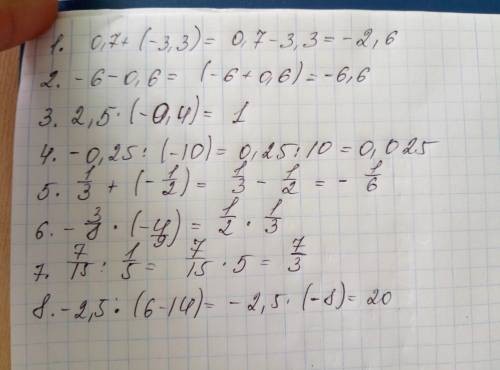 1. 0,7+(-3,3)= 0,7-3,3=-2,6
2. -6-0,6= (-6+0,6)=-6,6
3. 2,5·(-0,4)= 1
4. -0,25:(-10)=0,25:10=0,025
5. 1/3 + (-1/2) = 1/3 - 1/2 = - 1/6
6. - 3/8 · (-4/9) = 1/2 · 1/3
7. 7/15 : 1/5 = 7/15 · 5 = 7/3
8. -2,5·(6-14)= -2,5·(-8)= 20